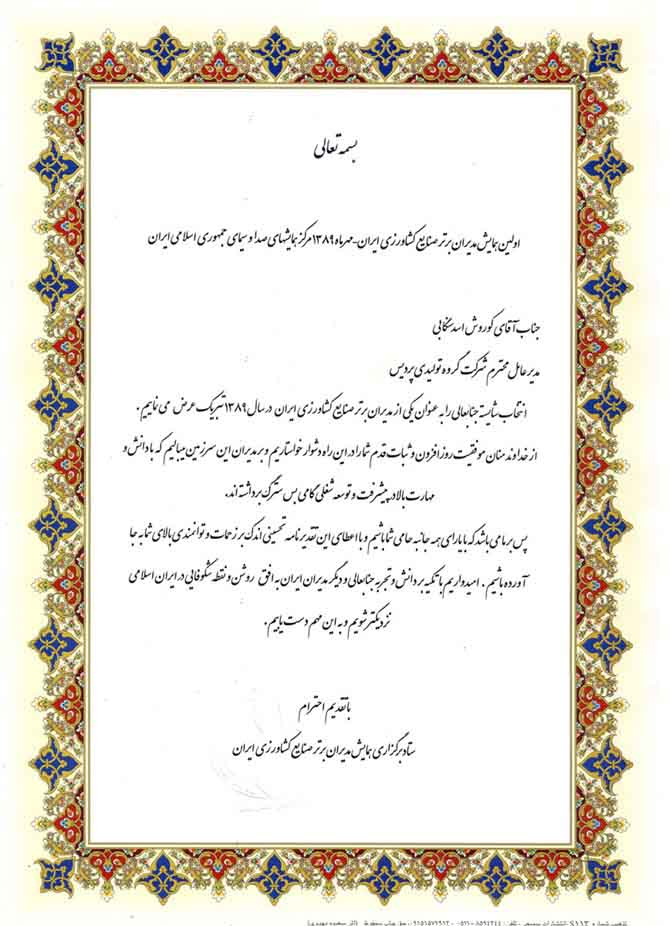 بسمه تعالی
اولین همایش مدیران برتر صنایع کشاورزی ایران-مهرماه ۱۳۸۹ مرکز همایشهای صدا و سیمای جمهوری اسلامی ایران
جناب آقای کوروش اسد سنگابی
مدیر عامل محترم شرکت گروه تولیدی پردیس
انتخاب شایسته جنابعالی را به عنوان یکی از مدیران برتر صنایع کشاورزی ایران در سال ۱۳۸۹ تبریک عرض می نماییم.
از خداوند منان موفقیت روز افزون و ثبات قدم شما را در این راه دشوار خواستاریم و بر مدیران این سرزمین میبالیم که با دانش و
مهارت بالا در پیشرفت و توسعه شغلی گامی بس سترگ برداشته اند.
پس بر ما می باشد که با یارای همه جانبه حامی شما باشیم و با اعطای این تقدیر نامه تحسینی اندک بر زحمات و توانمندی بالای شما به جا
آورده باشیم. امیدواریم با تکیه بر دانش و تجربه جنابعالی و دیگر مدیران ایران به افق روشن و نقطه شکوفایی در ایران اسلامی
نزدیکتر شویم و به این مهم دست یابیم.
با تقدیم احترام
ستاد برگزاری همایش مدیران برتر صنایع کشاورزی ایران